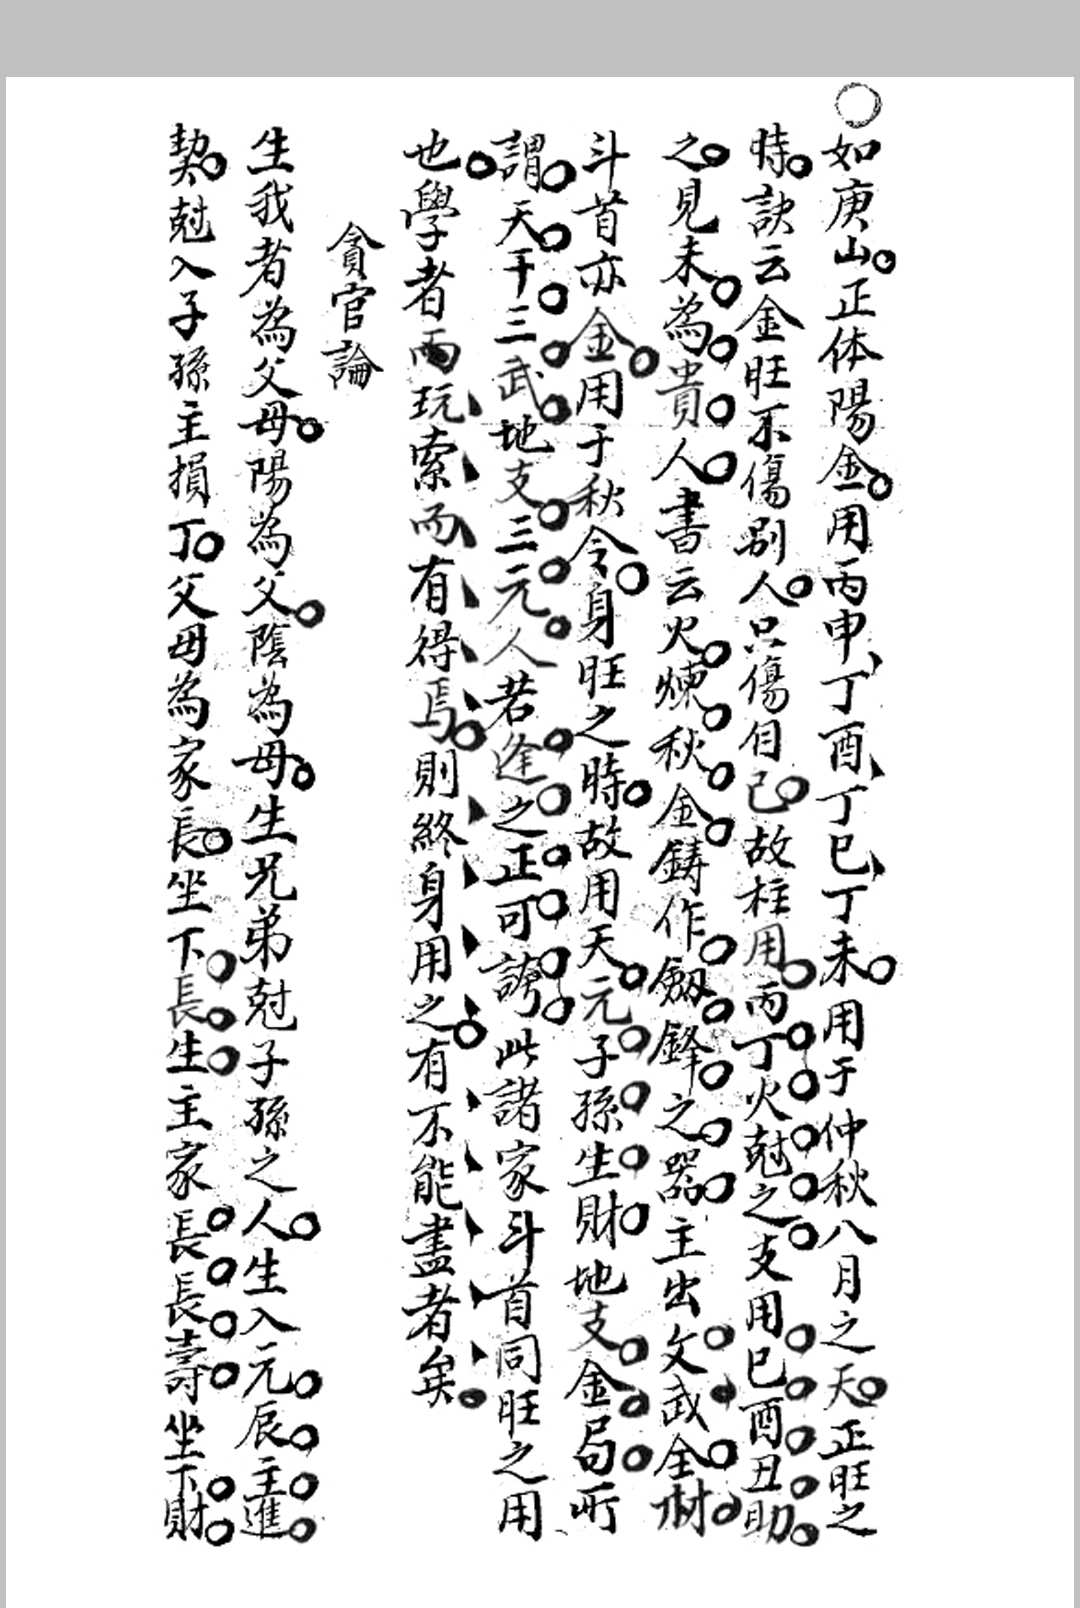 如庚山正体陽金用丙申丁酉丁巳丁未用于仲秋八月之天正旺之
時訣云金旺不傷别人只傷自己故柱用丙丁火尅之支用巳酉丑助
之見未為貴人書云火煉秋金鋳作劔鋒之器主出文武全材
斗首亦金用于秋令身旺之時故用天元子孫生財地支金局所
謂天干三武地支三元人若逢之正可誇此諸家斗首同旺之用
也學者而玩索而有得焉則終身用之有不能盡者矣
貪官論
生我者為父母陽為父陰為母生兄弟尅子孫之人生入元辰主進
契尅入子孫主損丁父母為家長坐下長生主家長長壽坐下財